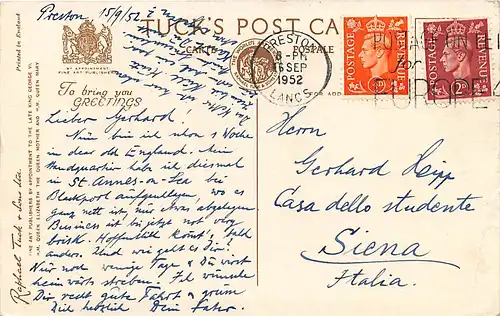 Preston, 15/9/52
TUCK'S POST CA
CARTE POSTALE
BY APPOINTMENT
FINE ART PUBLISHERS
To bring you
GREETINGS
FOR ADD
PRESTON
8 - PM
15 SEP
1952
LANCS.
POSTAGE REVENUE
POSTAGE REVENUE
Printed in England
FINE ART PUBLISHERS BY APPOINTMENT TO THE LATE KING GEORGE VI.
H.M. QUEEN ELIZABETH THE QUEEN MOTHER AND H.M. QUEEN MARY
Raphael Tuck & Sons Ltd.
Lieber Gerhard!
Nun bin ich schon 1 Woche
in dear old England. Mein
Headquartier habe ich diesmal
in St. Annes-on-Sea bei
Blackpool aufgeschlagen, wo es
ganz nett ist, nur etwas abgelegen.
Business ist bis jetzt not very
brisk. Hoffentlich kommt's bald
anders. Und wie geht es Dir?
Nur noch wenige Tage & Du wirst
heimwärts streben. Ich wünsche
Dir recht gute Fahrt & grüsse
Dich herzlich Dein Vater.
Herrn
Gerhard Hepp
Casa dello studente
Siena
Italia.